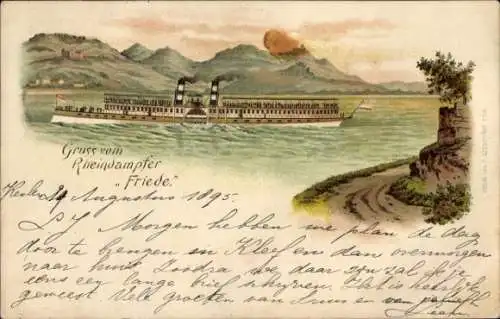 Gruss vom
Rheindampfer
"Friede."
29 Augustus 1895.
Morgen hebben we plan de dag
door te brengen en Kleef en dan overmorgen
naar huis. Zoodra we daar zijn zal ik je
eens een lange brief schrijven. Het is heerlijk
geweest. Vele groeten van en van